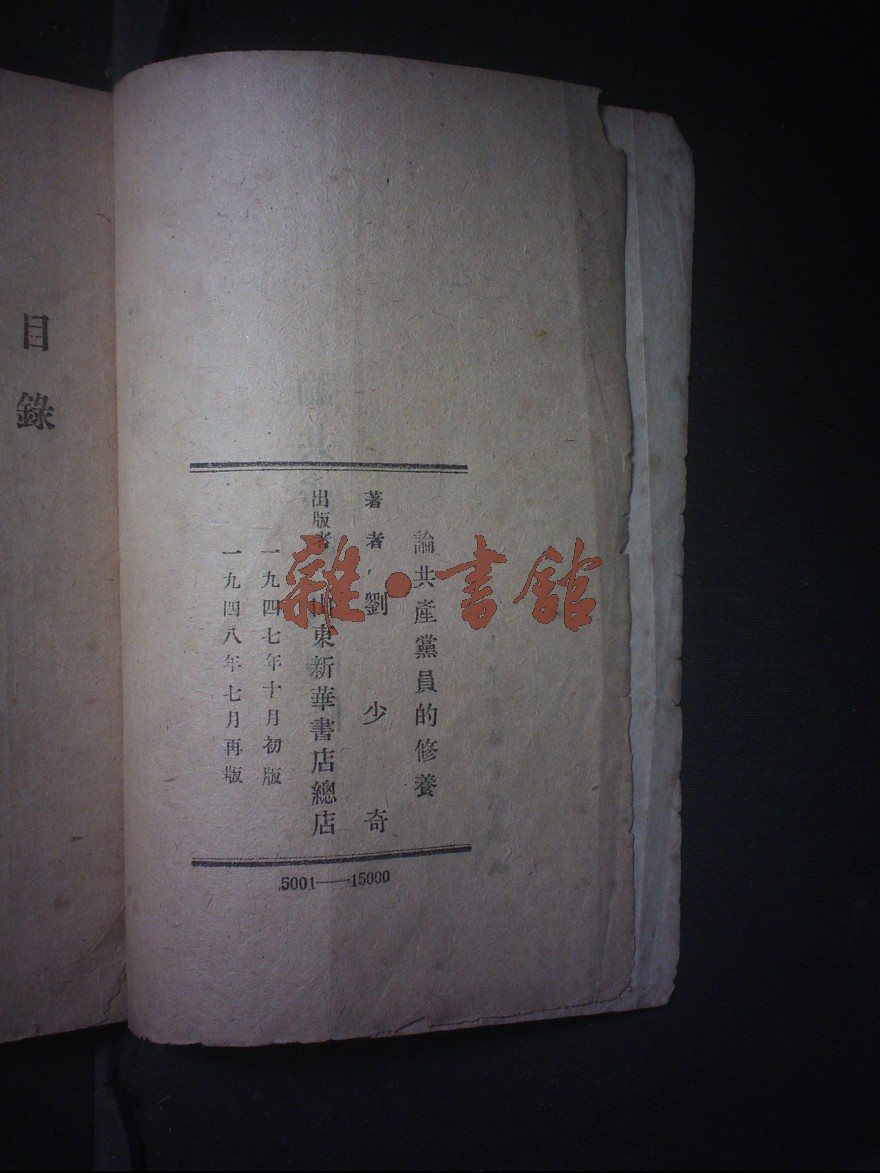 論共產黨員的修養
著者 劉少奇
出版者 山東新華書店總店
一九四七年十月初版
一九四八年七月再版
5001——15000
目錄
雜·書館